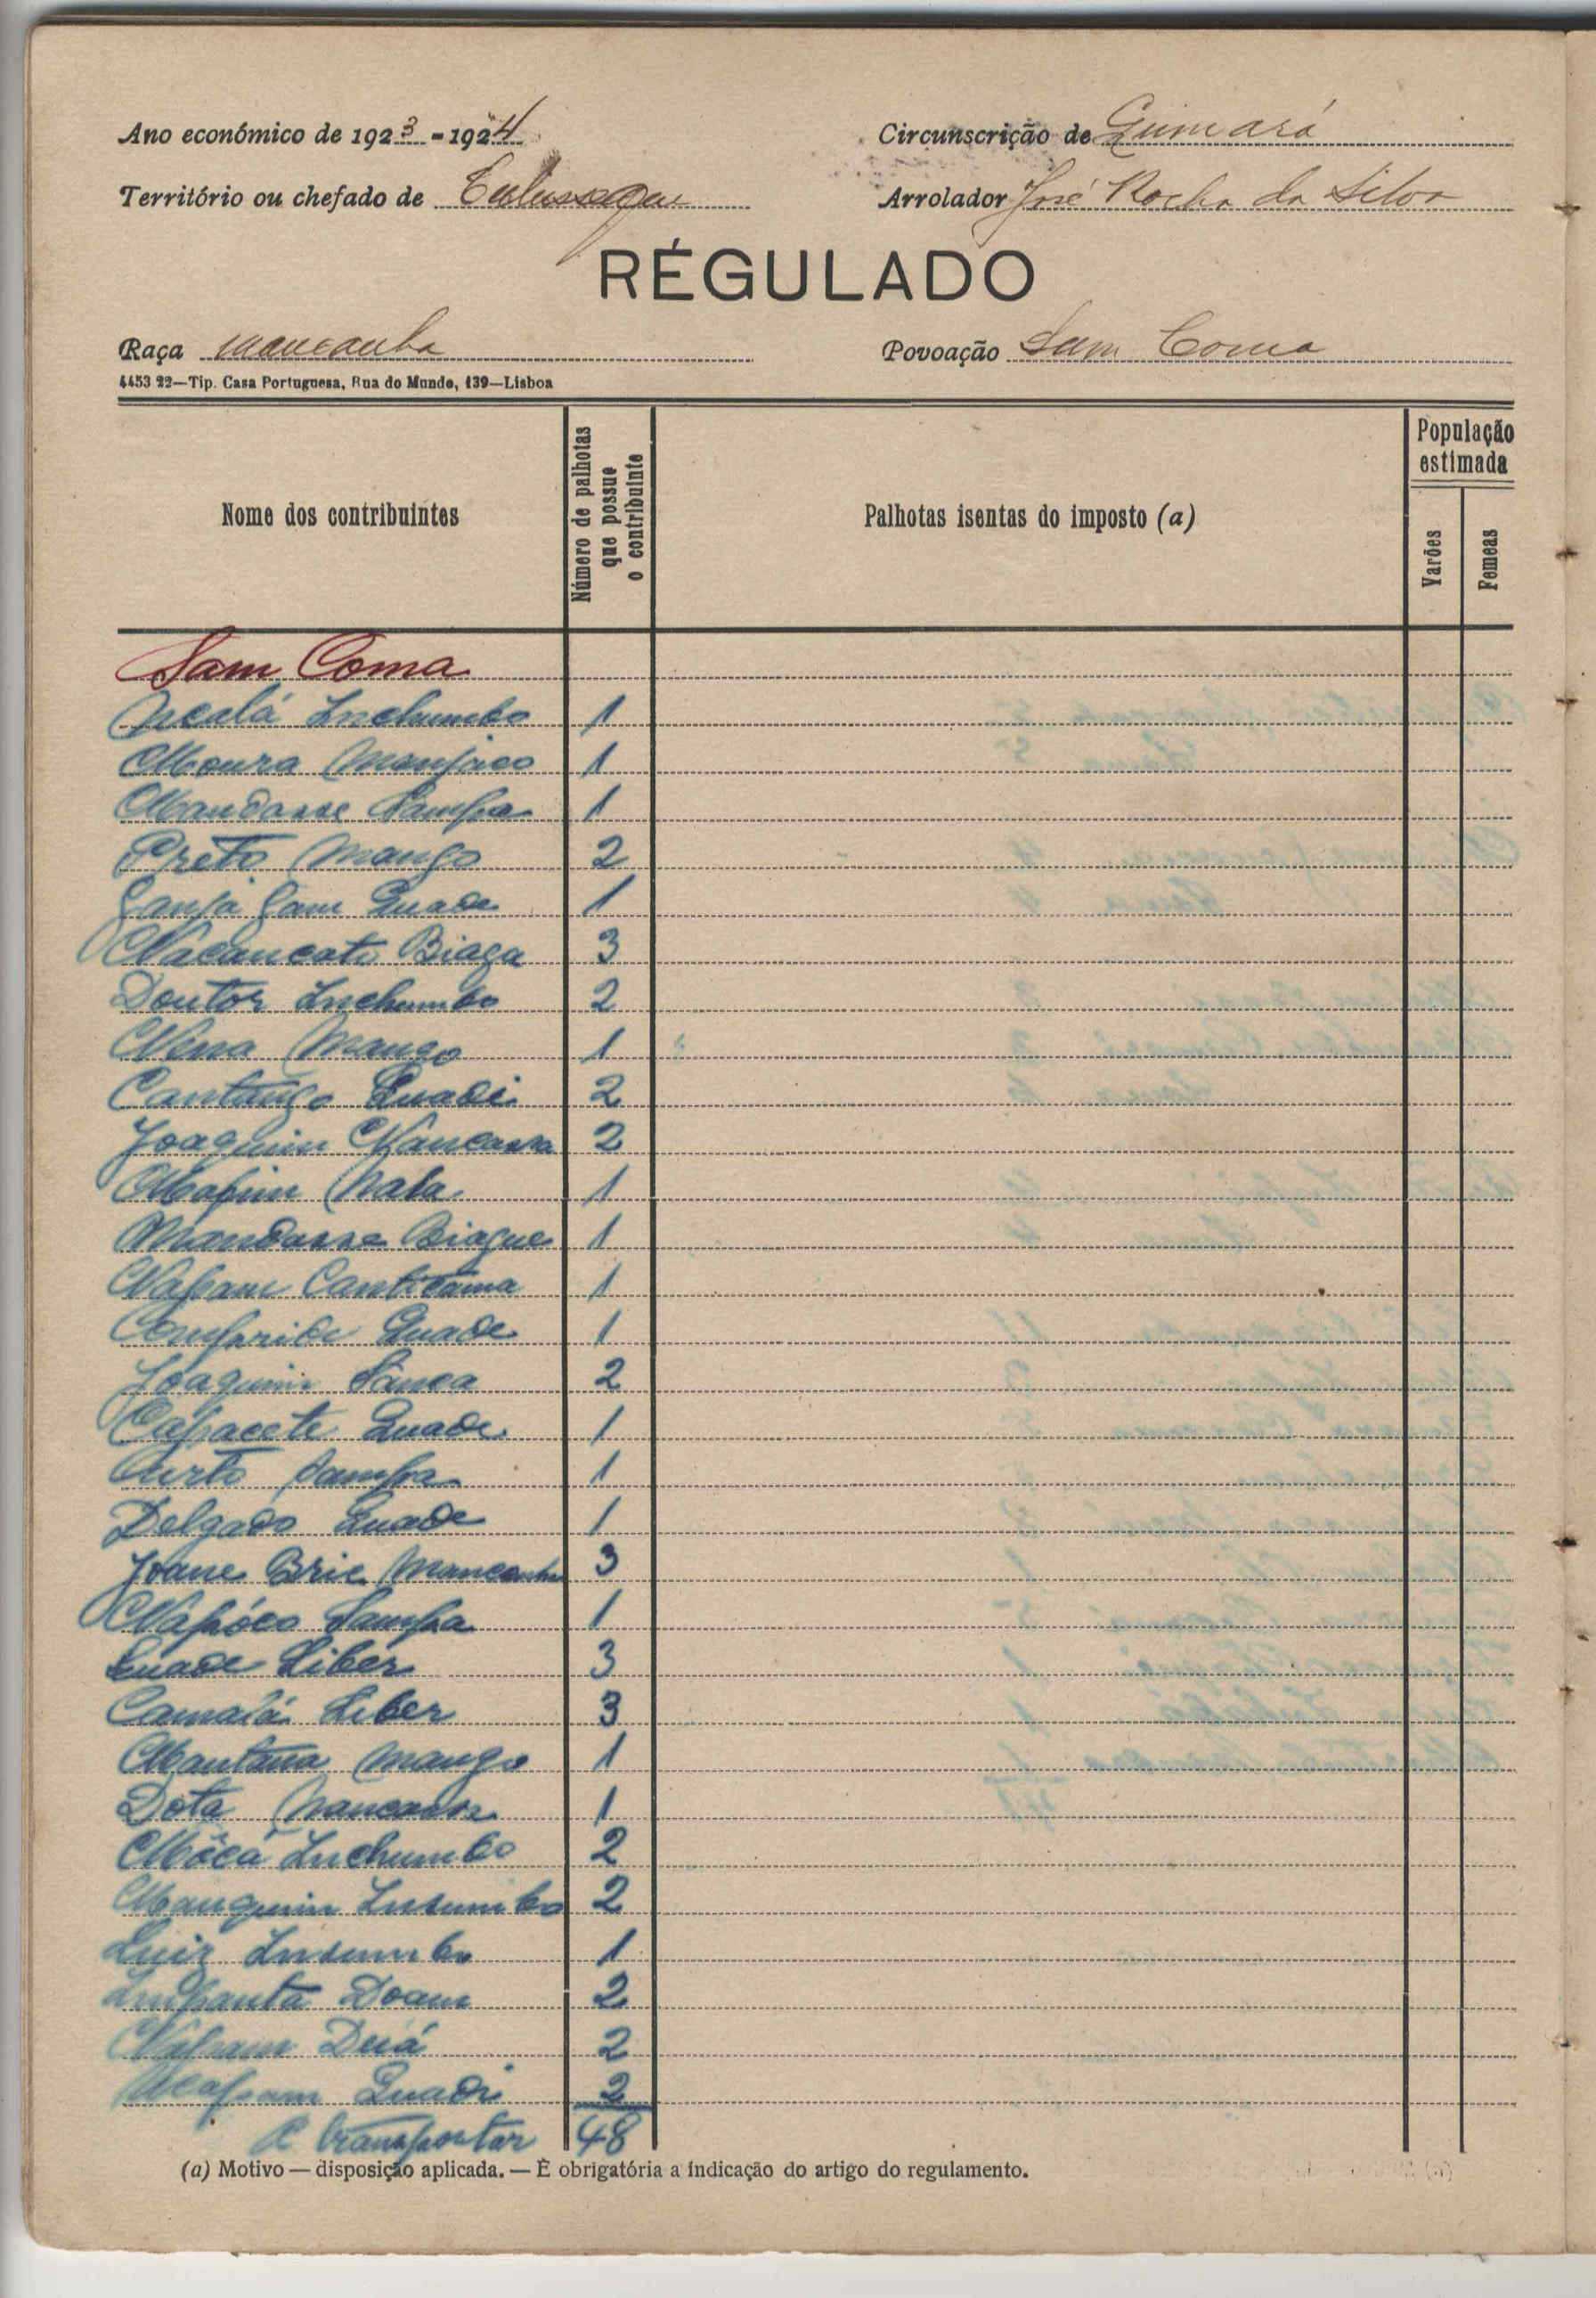 Ano económico de 1923-1924 Circunscrição de Quinará
Território ou chefado de Arrolador José Rocha da Silva
RÉGULADO
Raça mancanha Povoação Sam Coma
4453 22—Tip. Casa Portuguesa, Rua do Mundo, 139—Lisboa
Nome dos contribuintes
Número de palhotas que possue o contribuinte
Palhotas isentas do imposto (a)
População estimada
Varões
Femeas
Sam Coma
Inchumbo 1
Moura Manjaco 1
Mandasse Sampa 1
Preto Mango 2
Quade 1
Biaga 3
Doutor Inchumbo 2
Mango 1
Cantango Quadi 2
Joaquim Nancassa 2
Nala 1
Mandasse Biague 1
Napam 1
Comprido Quade 1
Joaquim Sanca 2
Capacete Quade 1
Curto Sampa 1
Delgado Quade 1
Joane Bric Mancanha 3
Napóco Sampa 1
Quade Liber 3
Camalá Liber 3
Mantana Mango 1
Dota Nancassa 1
Môcá Inchumbo 2
Manquim Insumbo 2
Luiz Insumbo 1
Doam 2
Napam Duá 2
Quadi 2
A transportar 48
(a) Motivo — disposição aplicada. — É obrigatória a indicação do artigo do regulamento.